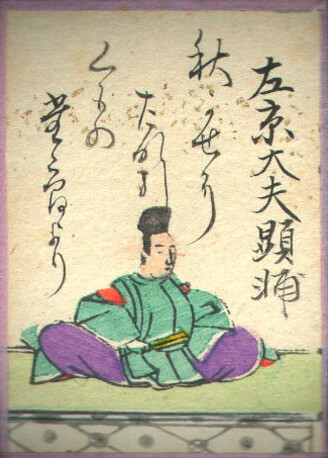 左京大夫顕輔
秋かせに
たなひく
くもの
たえ間より